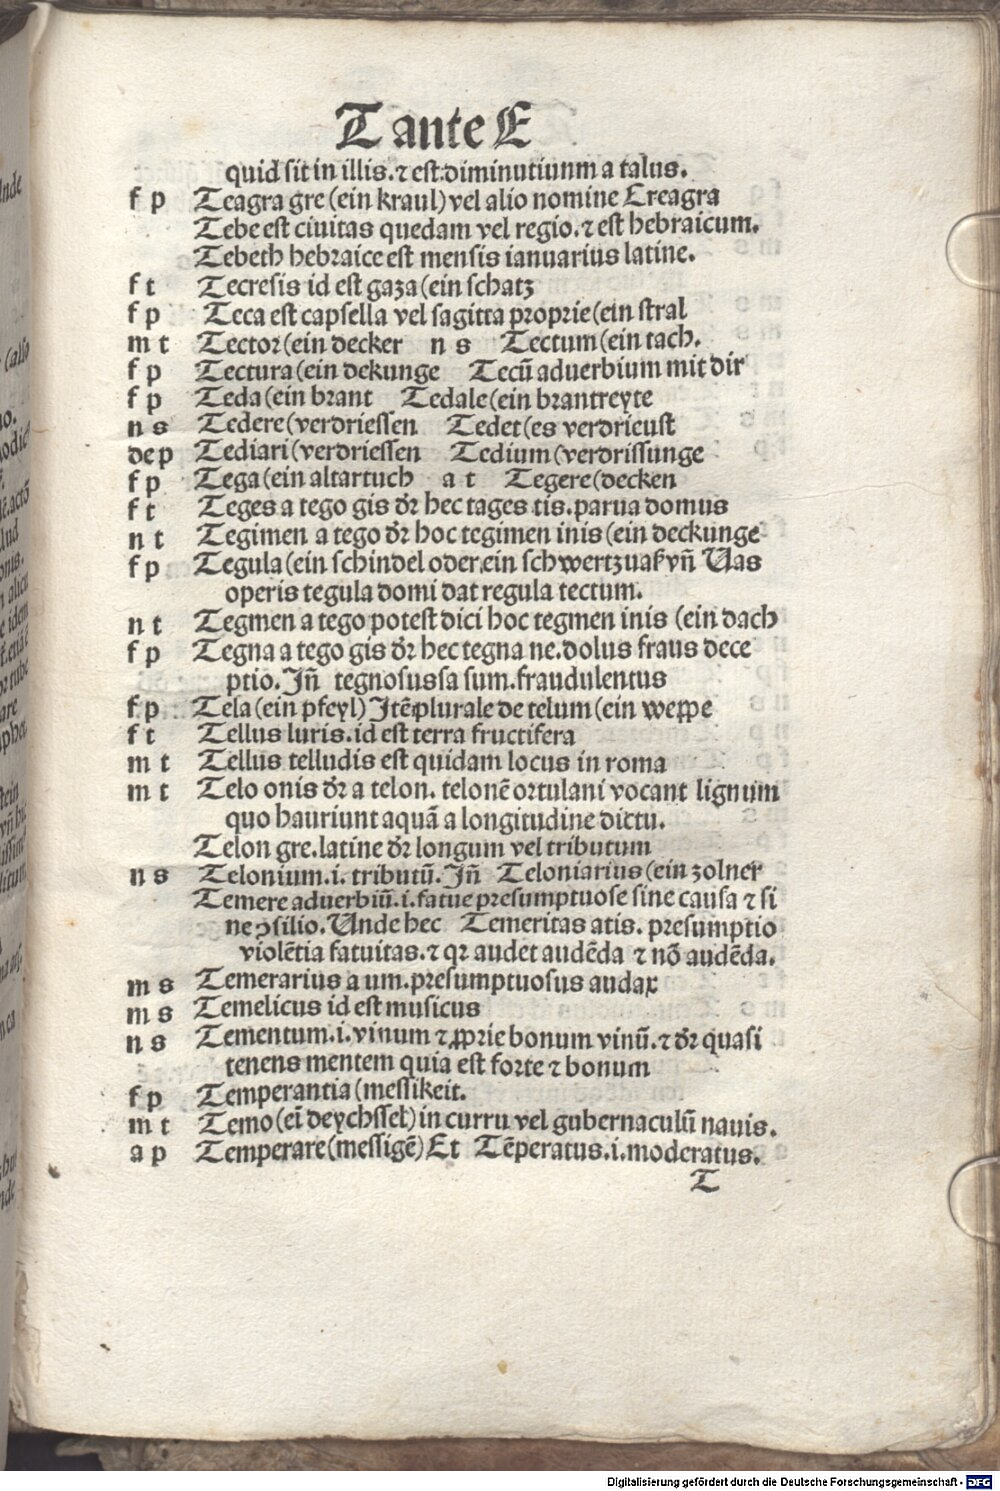 T ante E
quid sit in illis. ⁊ est diminutiuum a talus.
f p Teagra gre (ein kraul) vel alio nomine Creagra
Tebe est ciuitas quedam vel regio. ⁊ est hebraicum.
Tebeth hebraice est mensis ianuarius latine.
f t Tecresis id est gaza (ein schatz
f p Teca est capsella vel sagitta proprie (ein stral
m t Tector (ein decker n s Tectum (ein tach.
f p Tectura (ein dekunge Tecū aduerbium mit dir
f p Teda (ein brant Tedale (ein brantreyte
n s Tedere (verdriessen Tedet (es verdrieust
de p Tediari (verdriessen Tedium (verdrissunge
f p Tega (ein altartuch a t Tegere (decken
f t Teges a tego gis dr̄ hec tages tis. parua domus
n t Tegimen a tego dr̄ hoc tegimen inis (ein deckunge
f p Tegula (ein schindel oder ein schwertzuak vn̄ Uas
operis tegula domi dat regula tectum.
n t Tegmen a tego potest dici hoc tegmen inis (ein dach
f p Tegna a tego gis dr̄ hec tegna ne. dolus fraus dece
ptio. Jn̄ tegnosus sa sum. fraudulentus
f p Tela (ein pfeyl) Jtē plurale de telum (ein weppe
f t Tellus luris. id est terra fructifera
m t Tellus telludis est quidam locus in roma
m t Telo onis dr̄ a telon. telonē ortulani vocant lignum
quo hauriunt aquā a longitudine dictu.
Telon gre. latine dr̄ longum vel tributum
n s Telonium .i. tributū. Jn̄ Teloniarius (ein zolner
Temere aduerbiū .i. fatue presumptuose sine causa ⁊ si
ne ꝯsilio. Unde hec Temeritas atis. presumptio
violētia fatuitas. ⁊ qr audet audēda ⁊ nō audēda.
m s Temerarius a um. presumptuosus audax
m s Temelicus id est musicus
n s Tementum .i. vinum ⁊ ꝓprie bonum vinū. ⁊ dr̄ quasi
tenens mentem quia est forte ⁊ bonum
f p Temperantia (messikeit.
m t Temo (eī deychssel) in curru vel gubernaculū nauis.
a p Temperare (messigē) Et Tēperatus .i. moderatus.
T
Digitalisierung gefördert durch die Deutsche Forschungsgemeinschaft - DFG